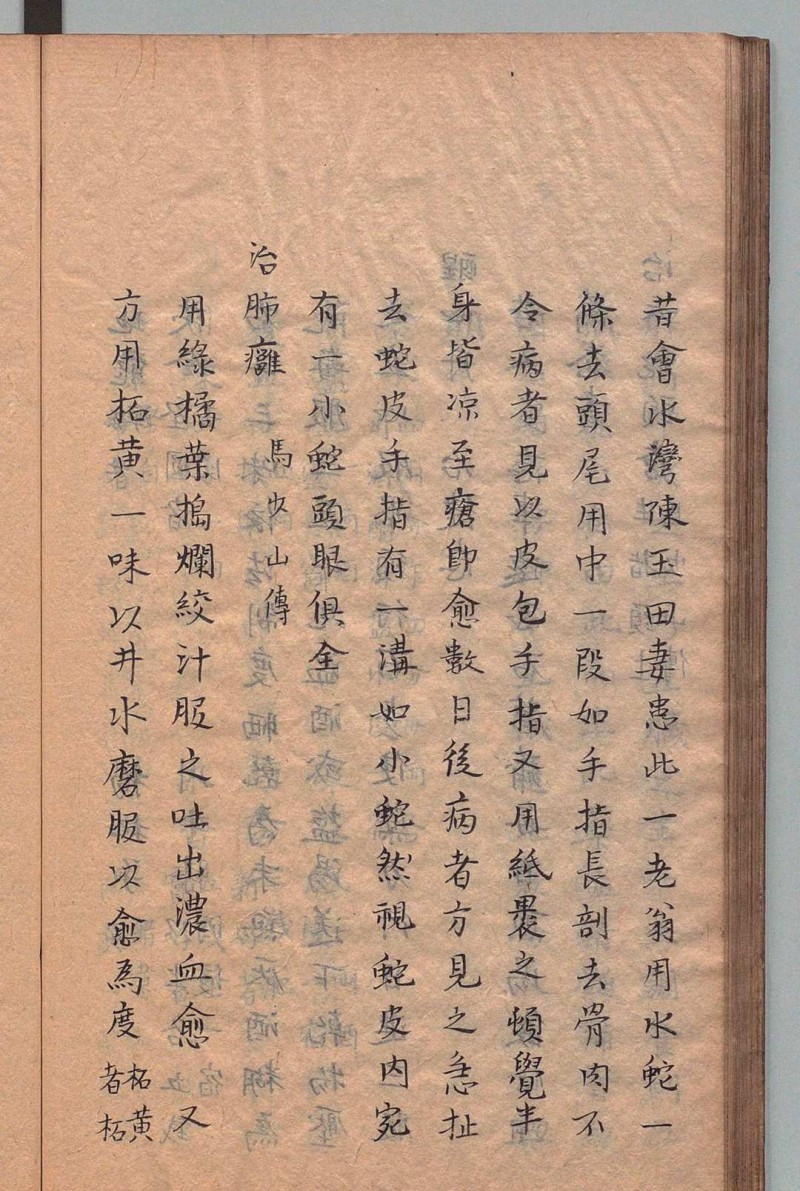 昔會水灣陳玉田妻患此一老翁用水蛇一
條去頭尾用中一段如手指長剖去骨肉不
令病者見以皮包手指又用紙裹之頓覺半
身皆凉至瘡卽愈數日後病者方見之急扯
去蛇皮手指有一溝如小蛇然視蛇皮内宛
有一小蛇頭眼俱全
治肺癰 馬少山傳
用綠橘葉搗爛絞汁服之吐出濃血愈又
方用柘黄一味以井水磨服以愈為度柘黄
者柘